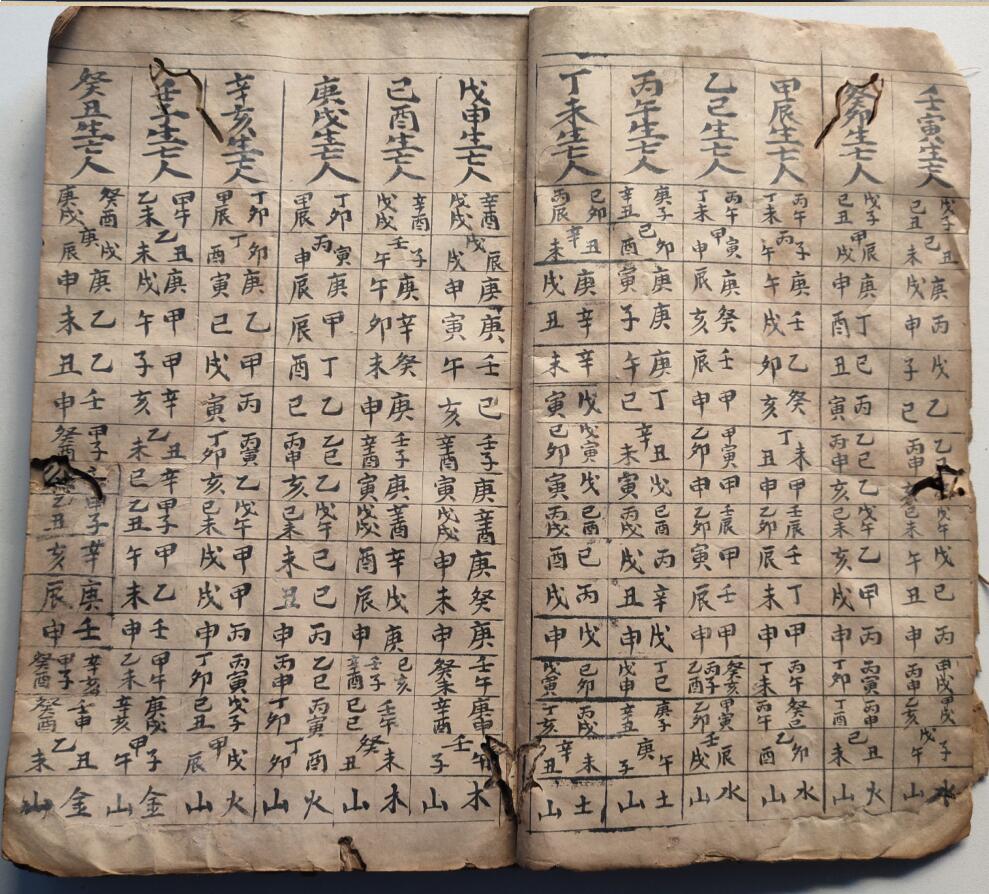 壬寅生七人 戊子 己丑 己丑未 庚戌 丙申 戊子 乙巳 乙丑 丙申 戊午 己未 戊午 己丑 丙申 甲戌 丙申 甲戌 乙亥 戊子午 水山
癸卯生七人 戊子 己丑 甲辰未 庚申 丁酉 己丑 丙寅 乙巳 丙申 乙亥 戊午 己未 乙亥 甲戌 丙申 丙寅 丁卯 丙申 丁酉 己丑未 火山
甲辰生七人 丙午 丁未 丙子午 庚午 壬戌 乙卯 癸亥 丁未丑 甲申 壬辰 乙卯 壬辰 丁未 甲申 丙午 丁未 癸巳 丙午 乙卯酉 水山
乙巳生七人 丙午 丁未 甲寅申 庚辰 癸亥 壬辰 甲申 甲寅 乙卯 甲申 壬辰 乙卯 甲寅 壬辰 甲申 癸亥 丙子 乙酉 甲寅 乙卯 壬辰戌 水山
丙午生七人 庚子 辛丑 己卯酉 庚寅 庚子 庚午 丁巳 辛丑未 戊寅 己酉 丙戌 丙戌 辛丑 戊申 丁巳 戊申 庚子 辛丑 庚午子 土山
丁未生七人 己卯 丙辰 辛丑未 庚戌 辛丑 辛未 戊寅 戊寅 己卯 戊寅 己酉 丙戌 己酉 丙戌 戊申 己卯 戊寅 丙戌 丁亥 辛未丑 土山
戊申生七人 辛酉 戊戌 戊辰戌 庚申 庚寅 壬午 己亥 壬子 辛酉 庚寅 辛酉 戊戌 庚申 癸未 庚申 壬午 癸未 庚申 辛酉 壬午子 木山
己酉生七人 辛酉 戊戌 壬子午 庚午 辛卯 癸未 庚申 壬子 辛酉 庚寅 辛酉 戊戌 辛酉 戊辰 庚申 己亥 壬子 辛酉 壬午 己巳 癸未丑 木山
庚戌生七人 丁卯 甲辰 丙寅申 庚辰 甲辰 丁酉 乙巳 乙巳 丙申 乙亥 戊午 己未 己未 己丑 丙申 乙巳 丙申 丙寅 丁卯 丁酉卯 火山
辛亥生七人 丁卯 甲辰 丁卯酉 庚寅 乙巳 甲戌 丙寅 丙寅 丁卯 乙亥 戊午 己未 甲戌 甲戌 丙申 丙寅 丁卯 戊子 己丑 甲戌辰 火山
壬子生七人 甲午 乙未 乙丑未 庚戌 甲午 甲子 辛亥 乙丑未 辛巳 甲子 乙丑 甲午 乙未 壬申 甲午 乙未 庚戌 辛亥 甲子午 金山
癸丑生七人 癸酉 庚戌 庚戌辰 庚申 乙未 乙丑 壬申 甲子 癸酉 甲子 乙丑 辛亥 庚辰 壬申 辛亥 甲子 癸酉 壬申 癸酉 乙丑未 金山